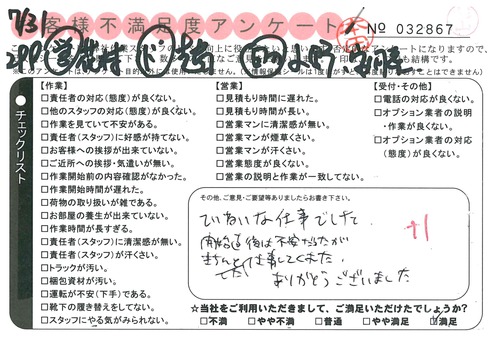 7/31
客様不満足度アンケート
No 032867
チェックリスト
【作業】
□責任者の対応(態度)が良くない。
□他のスタッフの対応(態度)が良くない。
□作業を見ていて不安がある。
□責任者(スタッフ)に好感が持てない。
□お客様への挨拶が出来ていない。
□ご近所への挨拶・気遣いが無い。
□作業開始前の内容確認がなかった。
□作業開始時間が遅れた。
□荷物の取り扱いが雑である。
□お部屋の養生が出来ていない。
□作業時間が長すぎる。
□責任者(スタッフ)に清潔感が無い。
□責任者(スタッフ)が汗くさい。
□トラックが汚い。
□梱包資材が汚い。
□運転が不安(下手)である。
□靴下の履き替えをしてない。
□スタッフにやる気がみられない。
【営業】
□見積もり時間に遅れた。
□見積もり時間が長い。
□営業マンに清潔感が無い。
□営業マンが煙草くさい。
□営業マンが汗くさい。
□営業態度が良くない。
□営業の説明と作業が一致してない。
【受付・その他】
□電話の対応が良くない。
□オプション業者の説明
・作業が良くない。
□オプション業者の対応
(態度)が良くない。
その他、ご意見・ご要望等ありましたらお書き下さい。
ていねいな仕事でした
開始直後は不安だったが
きちんと仕事してくれた
ありがとうございました
+1
☆当社をご利用いただきまして、ご満足いただけたでしょうか?
□不満 □やや不満 □普通 □やや満足 ☑満足